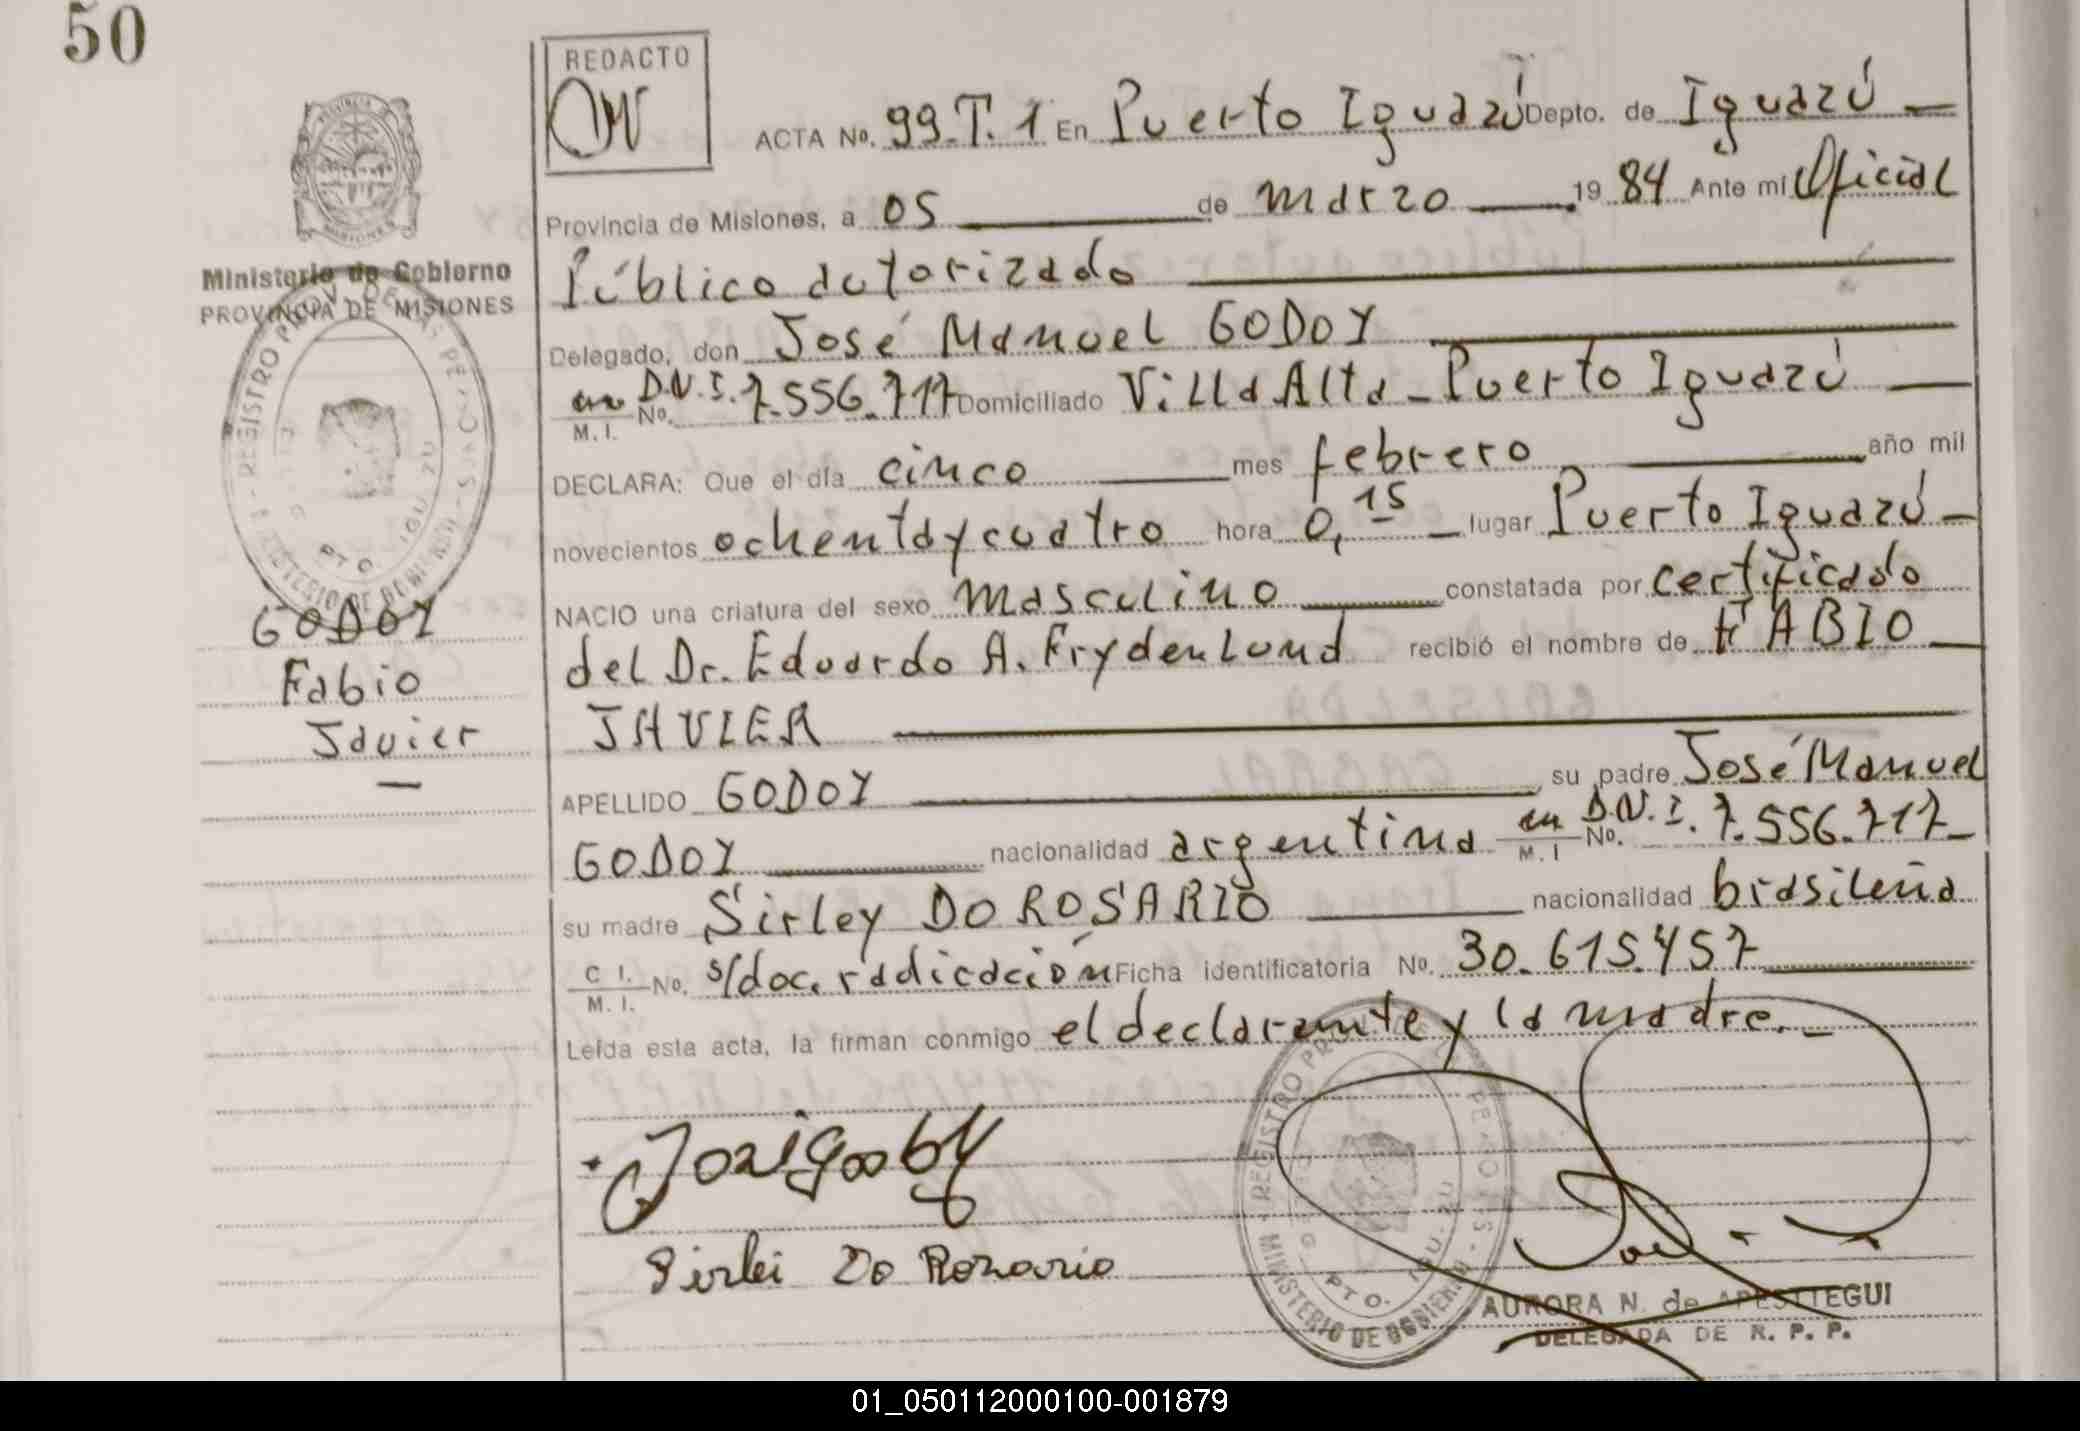 50
REDACTO
ACTA No. 99.T.1 En Puerto Iguazú Depto. de Iguazú
Provincia de Misiones, a 05 de marzo 1984 Ante mi Oficial
Público autorizado
Ministerio de Gobierno
PROVINCIA DE MISIONES
Delegado, don José Manuel GODOY
M. I. No. D.N.I. 7.556.717 Domiciliado Villa Alta - Puerto Iguazú
DECLARA: Que el día cinco mes febrero año mil
novecientos ochenta y cuatro hora 0,15 lugar Puerto Iguazú
NACIO una criatura del sexo masculino constatada por certificado
del Dr. Eduardo A. Frydenlund recibió el nombre de FABIO
JAVIER
GODOY
Fabio
Javier
APELLIDO GODOY su padre José Manuel
GODOY nacionalidad argentina M. I No. D.N.I. 7.556.717
su madre Sirley DO ROSARIO nacionalidad brasileña
C I. M. I. No. s/doc. radicación Ficha identificatoria No. 30.615.457
Leída esta acta, la firman conmigo el declarante y la madre.
Sirlei Do Rozario
AURORA N. de APESTTEGUI
DELEGADA DE R. P. P.
01_050112000100-001879